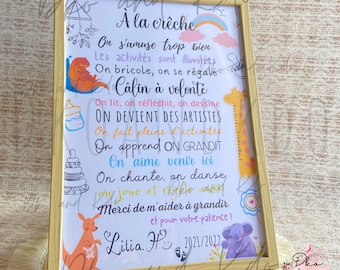 A la crêche
On s'amuse trop bien
Les activités sont illimitées
On bricole, on se régale
Câlin à volonté
On lit, on réfléchit, on dessine
ON DEVIENT DES ARTISTES
On fait pleins d'activités
On apprend ON GRANDIT
On aime venir ici
On chante, on danse,
on joue et
Merci de m'aider à grandir
et pour votre patience !
Lilia. H 2021/2022